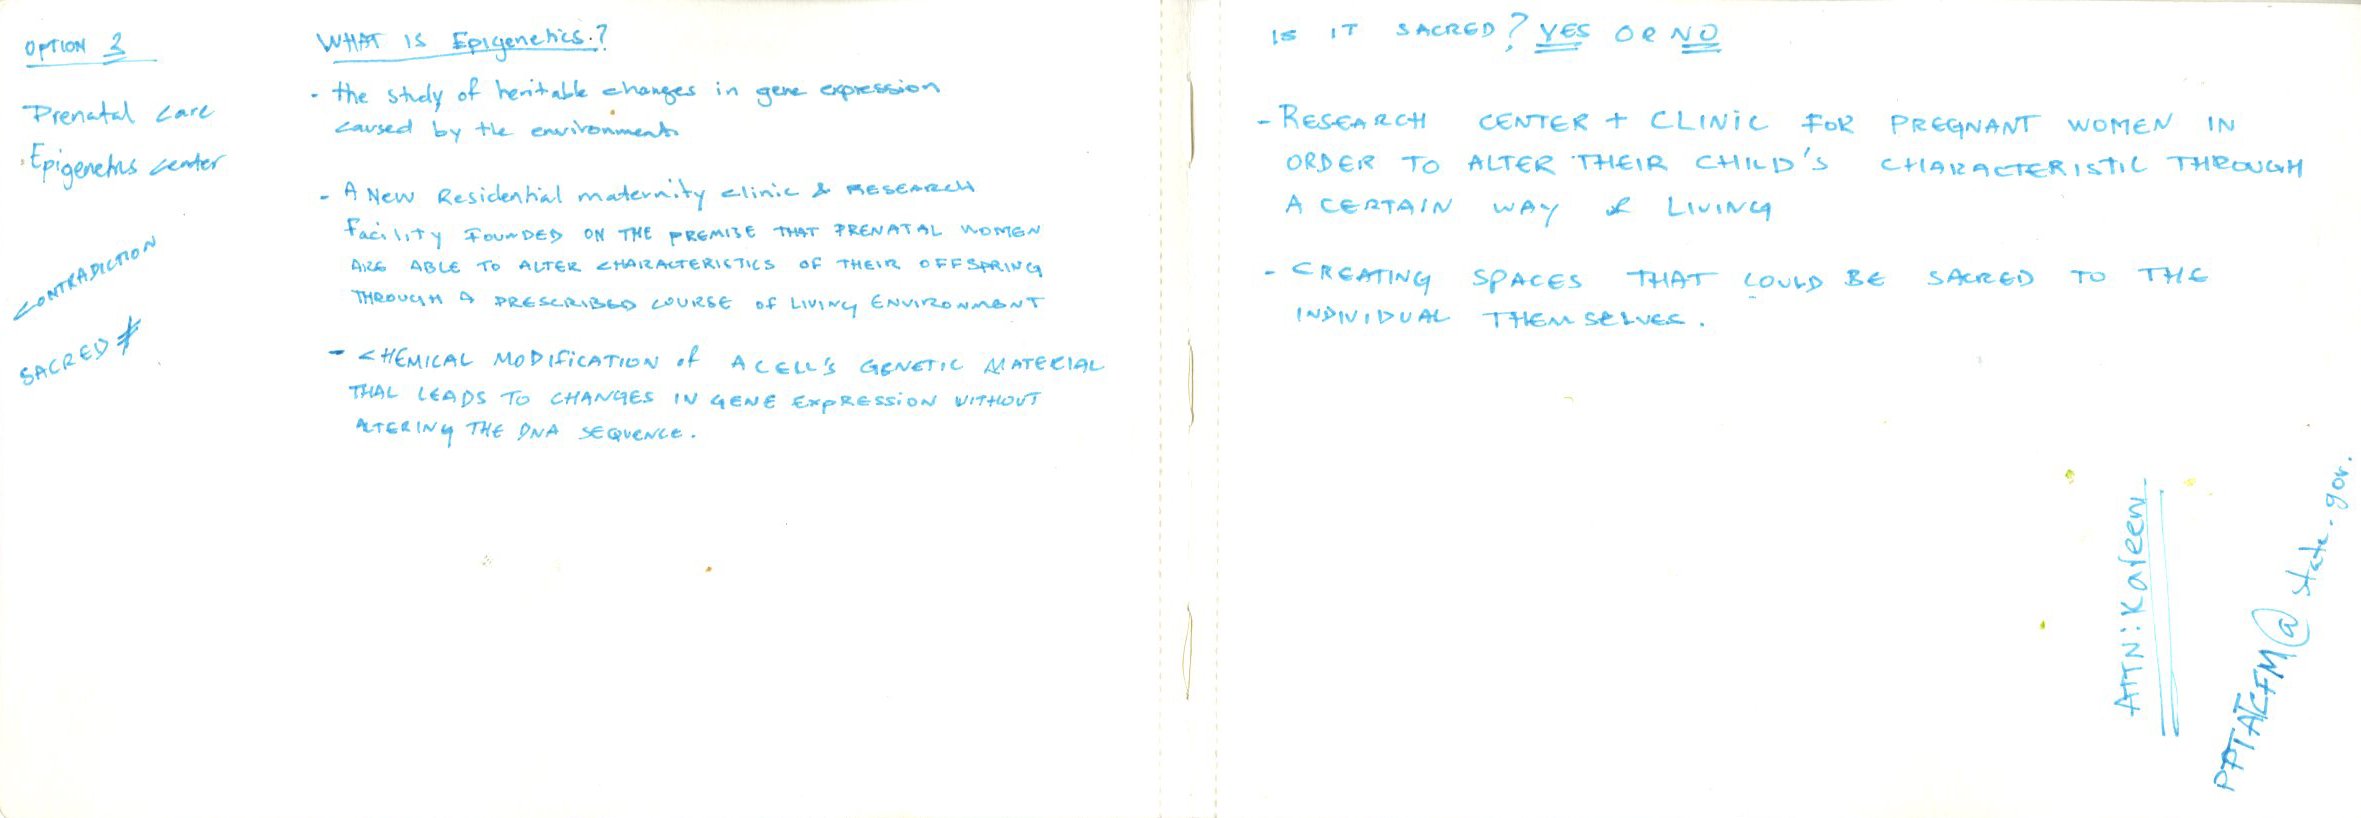 OPTION 3
Prenatal care
Epigenetics center
CONTRADICTION
SACRED
WHAT IS Epigenetics.?
- the study of heritable changes in gene expression
caused by the environment
- A New Residential maternity clinic & RESEARCH
Facility FOUNDED ON THE PREMISE THAT PRENATAL WOMEN
ARE ABLE TO ALTER CHARACTERISTICS OF THEIR OFFSPRING
THROUGH A PRESCRIBED COURSE OF LIVING ENVIRONMENT
- CHEMICAL MODIFICATION of A CELL'S GENETIC MATERIAL
THAL LEADS TO CHANGES IN GENE EXPRESSION WITHOUT
ALTERING THE DNA SEQUENCE.
IS IT SACRED? YES OR NO
- RESEARCH CENTER + CLINIC FOR PREGNANT WOMEN IN
ORDER TO ALTER THEIR CHILD'S CHARACTERISTIC THROUGH
A CERTAIN WAY of LIVING
- CREATING SPACES THAT COULD BE SACRED TO THE
INDIVIDUAL THEMSELVES.
ATTN: Kareen
@state.gov.